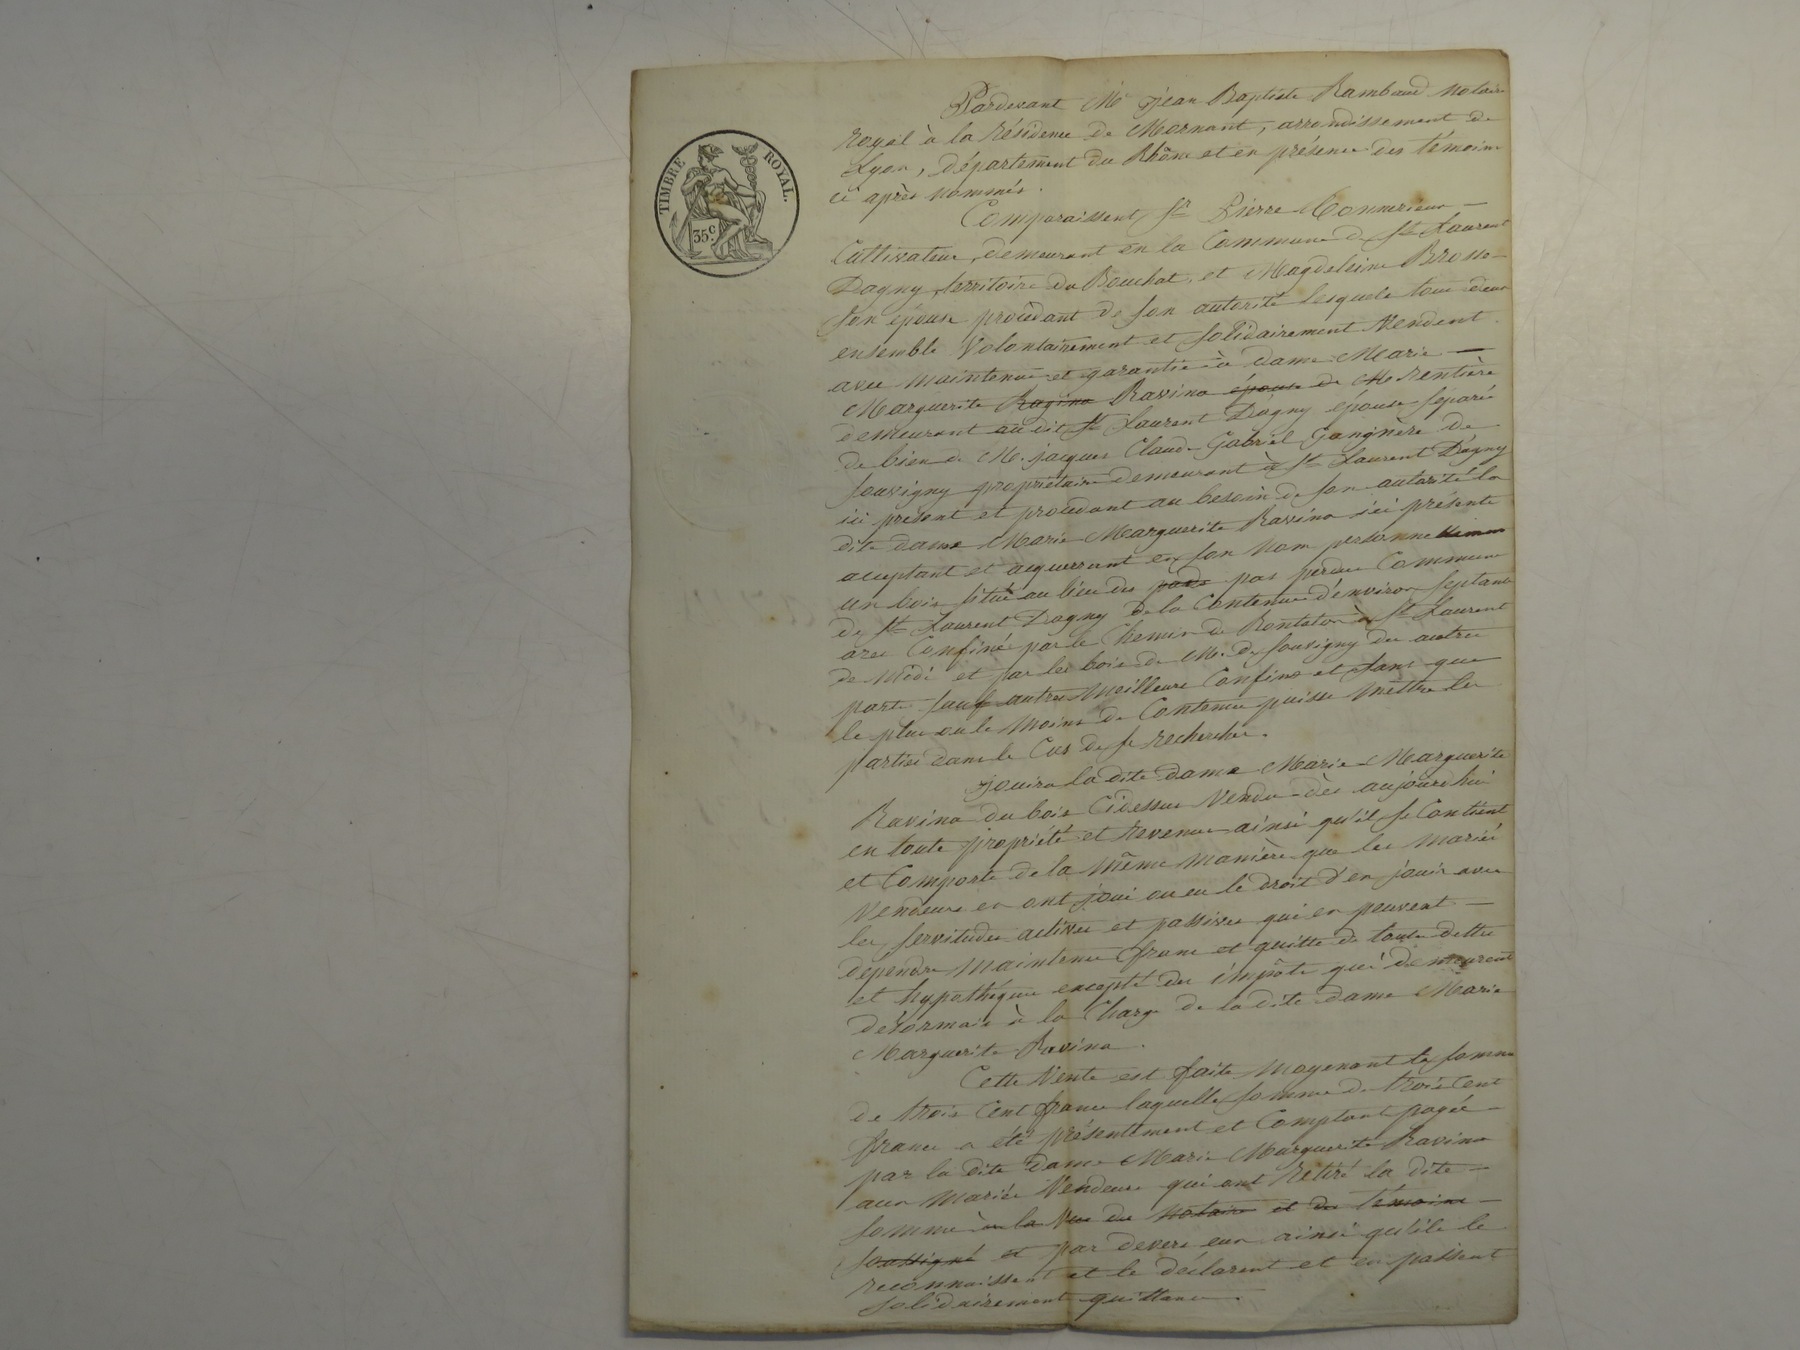 TIMBRE ROYAL.
35c.
Pardevant Me Jean Baptiste Rambaud Notaire
Royal à la résidence de Mornant, arrondissement de
Lyon, département du Rhône et en présence des témoins
ci après nommés.
Comparaissent Sr Pierre
Cultivateur, demeurant en la Commune de St Laurent
Dagny territoire du Bouchat, et Magdeleine Brosse
son épouse procédant de son autorité lesquels tous deux
ensemble Volontairement et solidairement Vendent
avec maintenue et garantie à dame Marie
Marguerite Ragina Ravina épouse de M. rentière
demeurant au dit St Laurent Dagny épouse séparée
de bien de M. jacques Claude Gabriel Gangnère de
Souvigny propriétaire demeurant à St Laurent Dagny
ici présent et procédant au besoin de son autorité la
dite dame Marie Marguerite Ravina ici présente
aceptant et acquerrant en son Nom personnel
un bois situé au lieu des pas perdus Commune
de St Laurent Dagny de la Contenue d'environ septante
ares Confiné par le Chemin de Rontalon à St Laurent
de Midi et par les bois de M. de Souvigny des autres
parts sauf autres Meilleurs Confins et sans que
le plus ou le Moins de Contenue puisse Mettre les
parties dans le Cas de se rechercher.
Jouira la dite dame Marie Marguerite
Ravina du bois Cidessus Vendu dès aujourd'hui
en toute propriété et revenus ainsi qu'il se Contient
et Comporte de la même manière que les mariés
Vendeurs en ont joui ou eu le droit d'en jouir avec
les servitudes actives et passives qui en peuvent
dépendre Maintenu franc et quitte de toute dettes
et hypothèques excepté des impôts qui demeurent
désormais à la Charge de la dite dame Marie
Marguerite Ravina.
Cette Vente est faite Moyenant la somme
de trois Cent francs laquelle somme de trois Cent
francs a été présentement et Comptant payée
par la dite dame Marie Marguerite Ravina
aux Mariés Vendeurs qui ont retiré la dite
somme à la Vue du Notaire et des témoins
soussigné et par devers eux ainsi qu'ils le
reconnaissent et le déclarent et en passent
solidairement quittance.